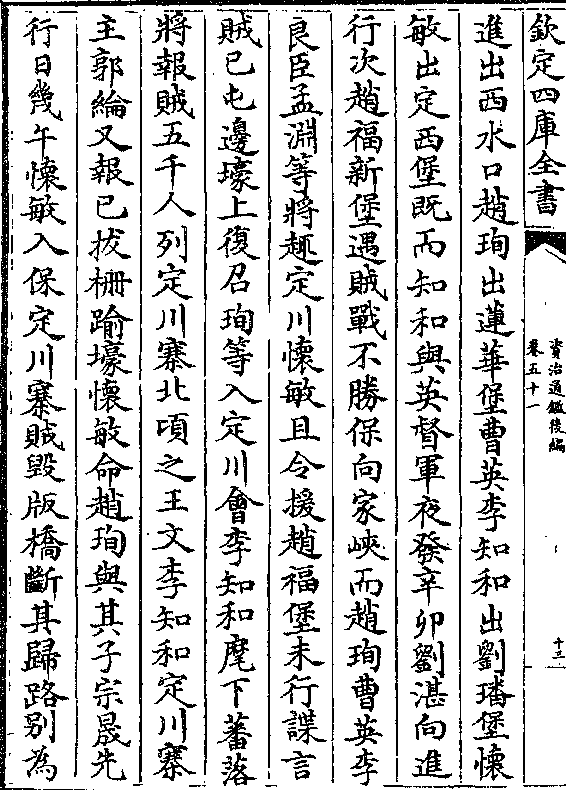 欽定四庫全書
資治通鑑後編
卷五十一
十三
進出西水口趙珣出蓮華堡曹英李知和出劉璠堡懷
敏出定西堡既而知和與英督軍夜發辛卯劉湛向進
行次趙福新堡遇賊戰不勝保向家峽而趙珣曹英李
良臣孟淵等將趣定川懷敏且令援趙福堡未行諜言
賊已屯邊壕上復召珣等入定川會李知和麾下蕃落
將報賊五千人列定川寨北頃之王文李知和定川寨
主郭綸又報已拔柵踰壕懷敏命趙珣與其子宗晟先
行日幾午懷敏入保定川寨賊毀版橋斷其歸路别為